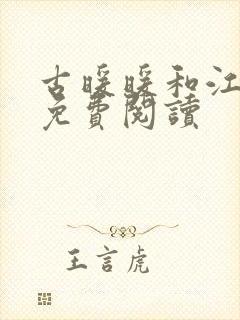 古暖暖和江
免費閱讀
王言虎